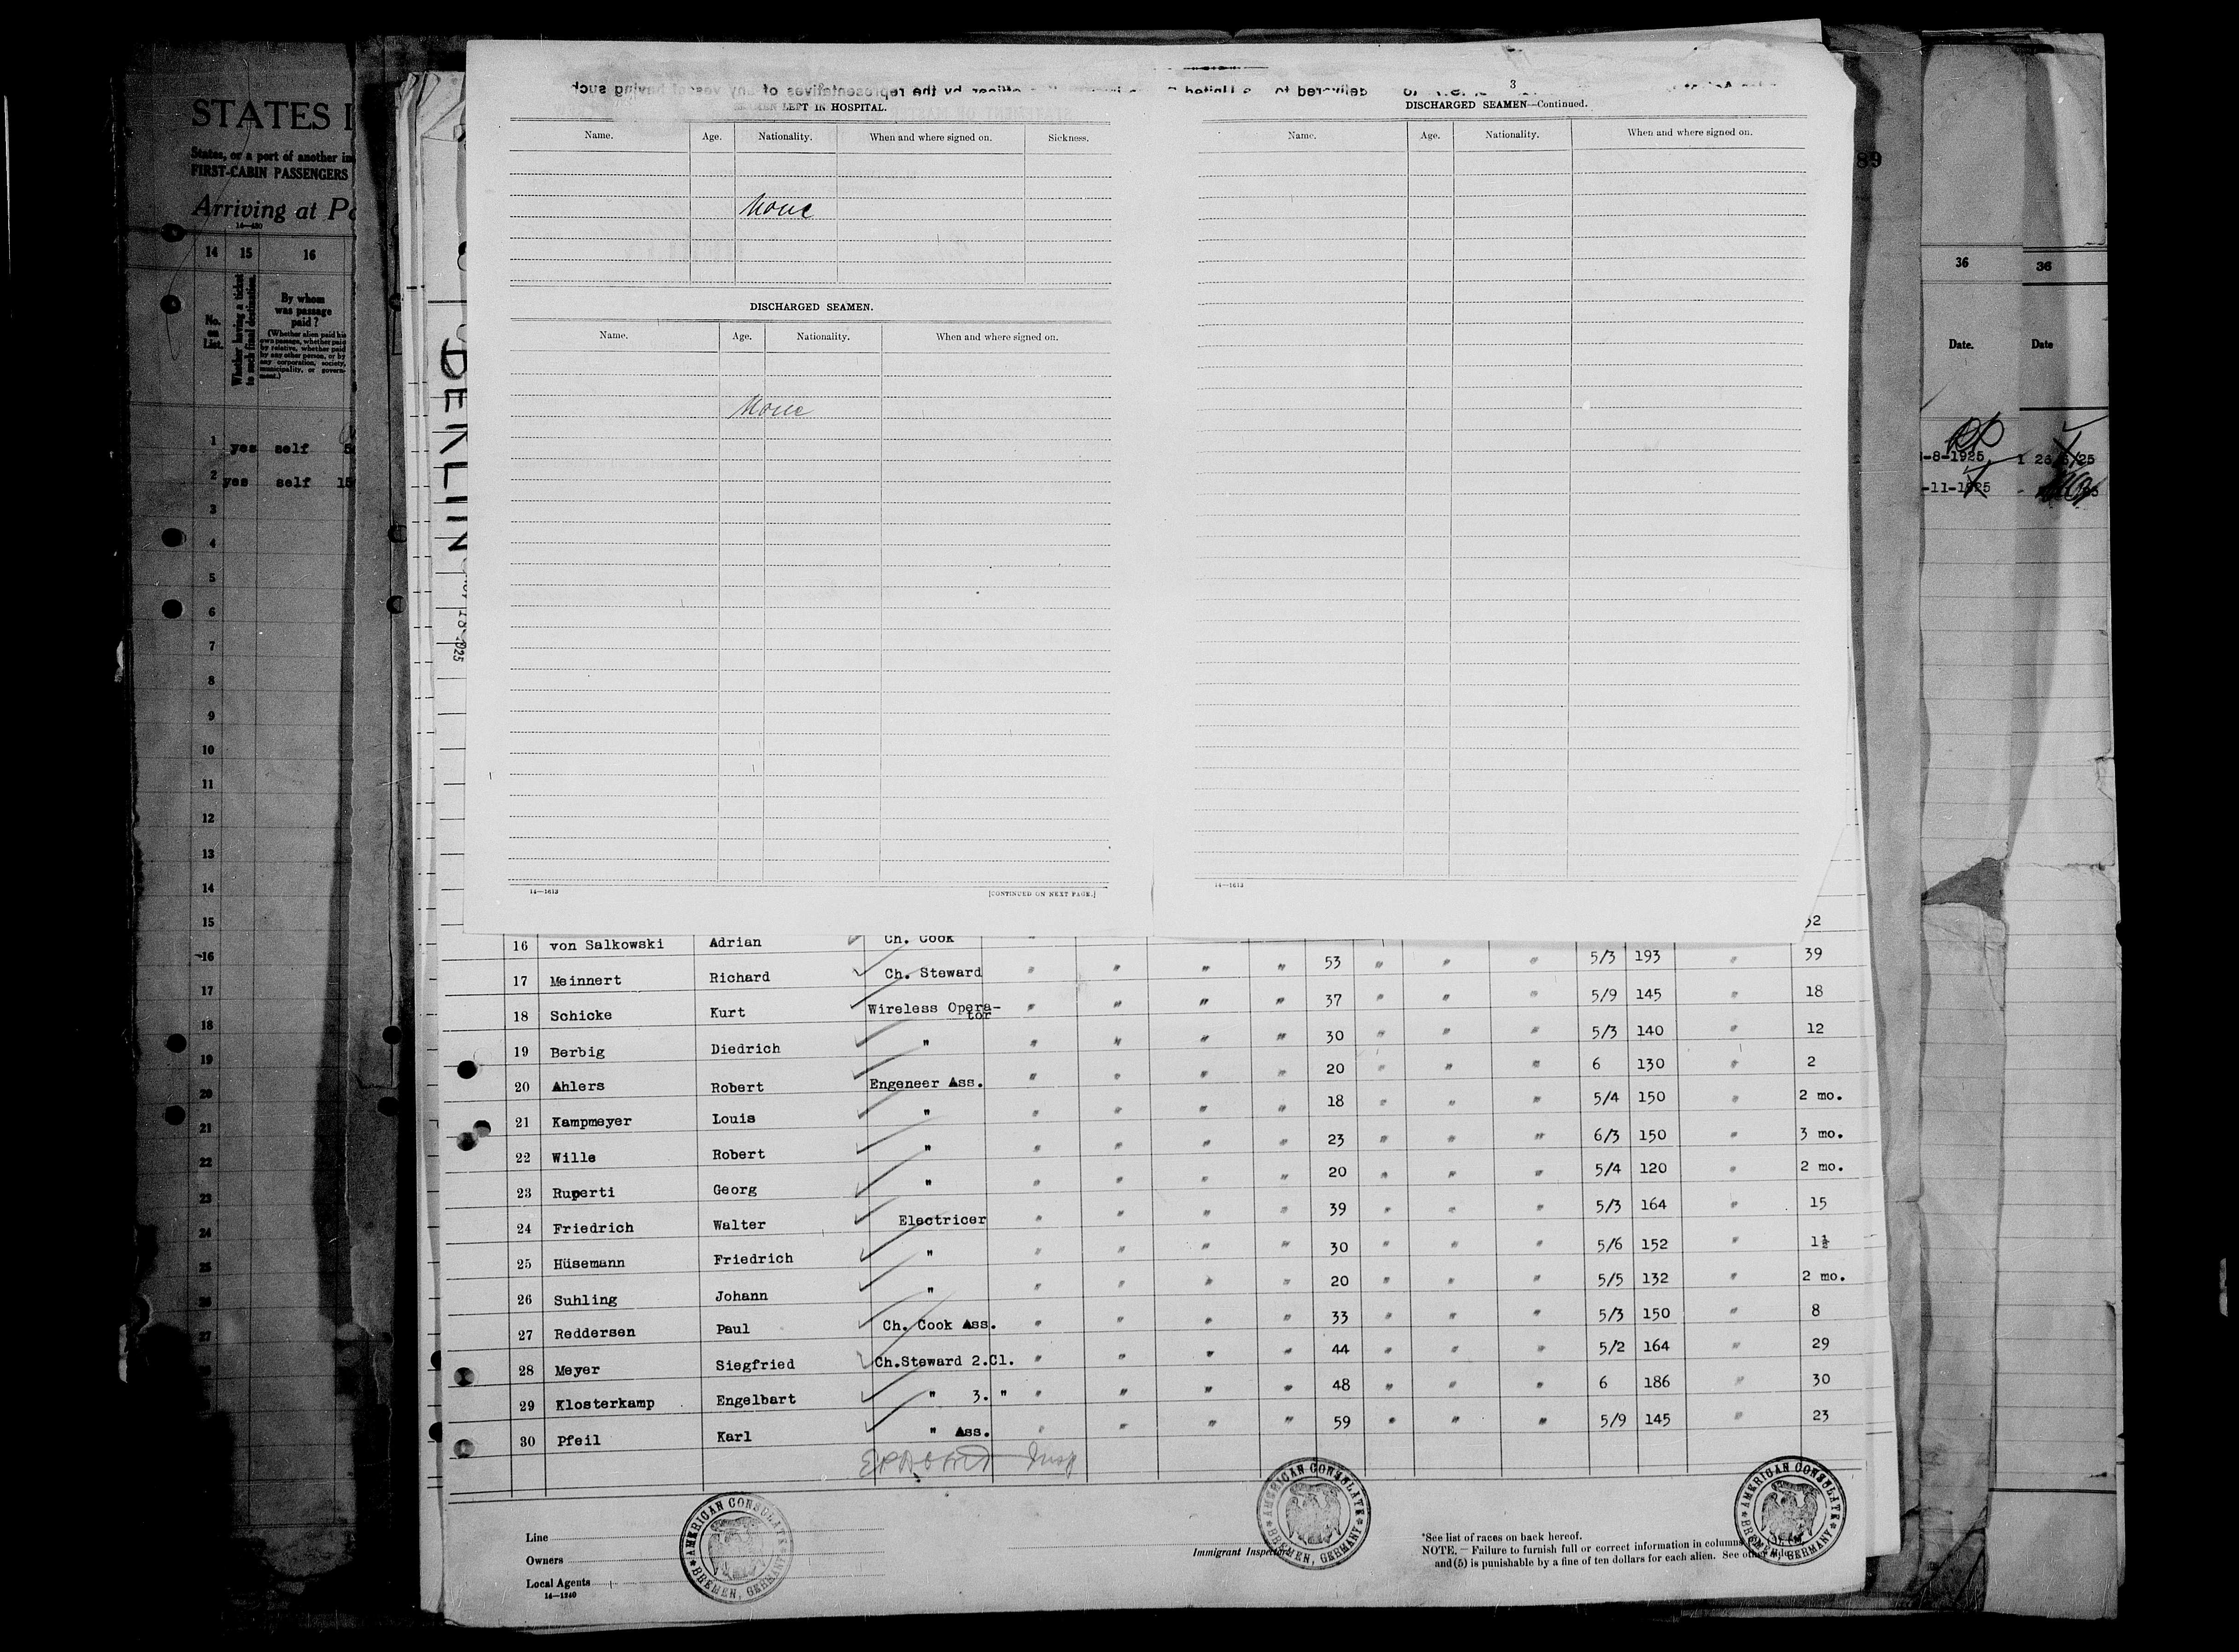 STATES I
States, or a port of another in
FIRST-CABIN PASSENGERS
Arriving at Po
14—430
14 15 16
No. on List.
Whether having a ticket to such final destination.
By whom was passage paid?
(Whether alien paid his own passage, whether paid by relative, whether paid by any other person, or by any corporation, society, municipality, or government.)
1 yes self
2 yes self 15
3
4
5
6
7
8
9
10
11
12
13
14
15
16
17
18
19
20
21
22
23
24
25
26
27
BERLIN
LEFT IN HOSPITAL.
Name. Age. Nationality. When and where signed on. Sickness.
None
DISCHARGED SEAMEN.
Name. Age. Nationality. When and where signed on.
None
14—1613 [CONTINUED ON NEXT PAGE.]
3
DISCHARGED SEAMEN—Continued.
Name. Age. Nationality. When and where signed on.
14—1613
89
36 36
Date. Date
-8-1925
-11-1925
16 von Salkowski Adrian Ch. Cook 53 " " " 5/3 193 " 39
17 Meinnert Richard Ch. Steward " " " " 37 " " " 5/9 145 " 18
18 Schicke Kurt Wireless Opera-
tor " " " " 30 " " " 5/3 140 " 12
19 Berbig Diedrich " " " " " 20 " " " 6 130 " 2
20 Ahlers Robert Engeneer Ass. " " " " 18 " " " 5/4 150 " 2 mo.
21 Kampmeyer Louis " " " " " 23 " " " 6/3 150 " 3 mo.
22 Wille Robert " " " " " 20 " " " 5/4 120 " 2 mo.
23 Ruperti Georg " " " " " 39 " " " 5/3 164 " 15
24 Friedrich Walter Electricer " " " " 30 " " " 5/6 152 " 1½
25 Hüsemann Friedrich " " " " " 20 " " " 5/5 132 " 2 mo.
26 Suhling Johann " " " " " 33 " " " 5/3 150 " 8
27 Reddersen Paul Ch. Cook Ass. " " " " 44 " " " 5/2 164 " 29
28 Meyer Siegfried Ch.Steward 2.Cl. " " " " 48 " " " 6 186 " 30
29 Klosterkamp Engelbart " 3. " " " " " 59 " " " 5/9 145 " 23
30 Pfeil Karl " Ass. "
Insp
Line
Owners
Local Agents
14—1240
AMERICAN CONSULATE
BREMEN, GERMANY
Immigrant Inspector
AMERICAN CONSULATE
BREMEN, GERMANY
*See list of races on back hereof.
NOTE.—Failure to furnish full or correct information in columns
and (5) is punishable by a fine of ten dollars for each alien. See other
AMERICAN CONSULATE
BREMEN, GERMANY